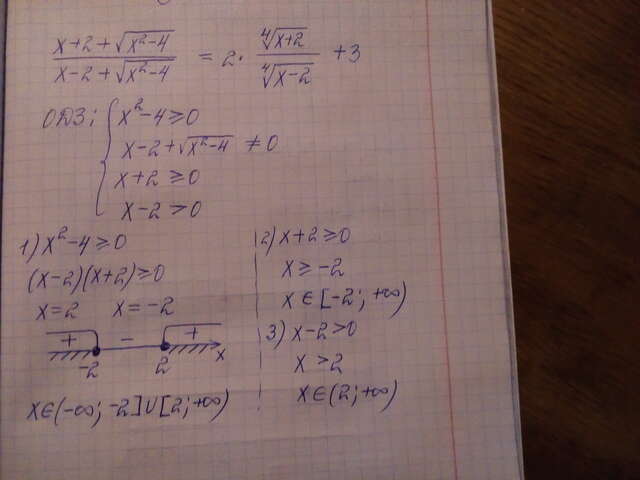 (x+2+√(x²-4))/(x-2+√(x²-4)) = 2 · ⁴√(x+2)/⁴√(x-2) + 3
ОДЗ: { x²-4≥0
x-2+√(x²-4) ≠ 0
x+2 ≥ 0
x-2 > 0
1) x²-4≥0
(x-2)(x+2)≥0
x=2 x=-2
+ - +
-2 2 x
x∈(-∞; -2]∪[2; +∞)
2) x+2≥0
x≥-2
x∈[-2; +∞)
3) x-2>0
x>2
x∈(2; +∞)